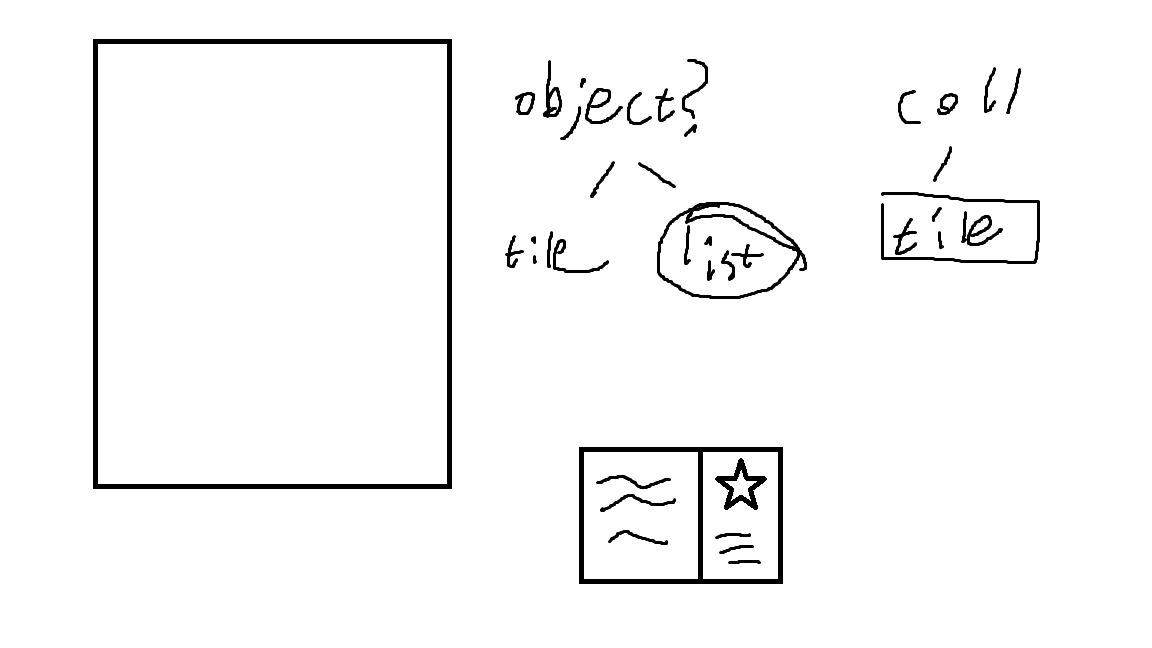 object?
tile list
coll
tile